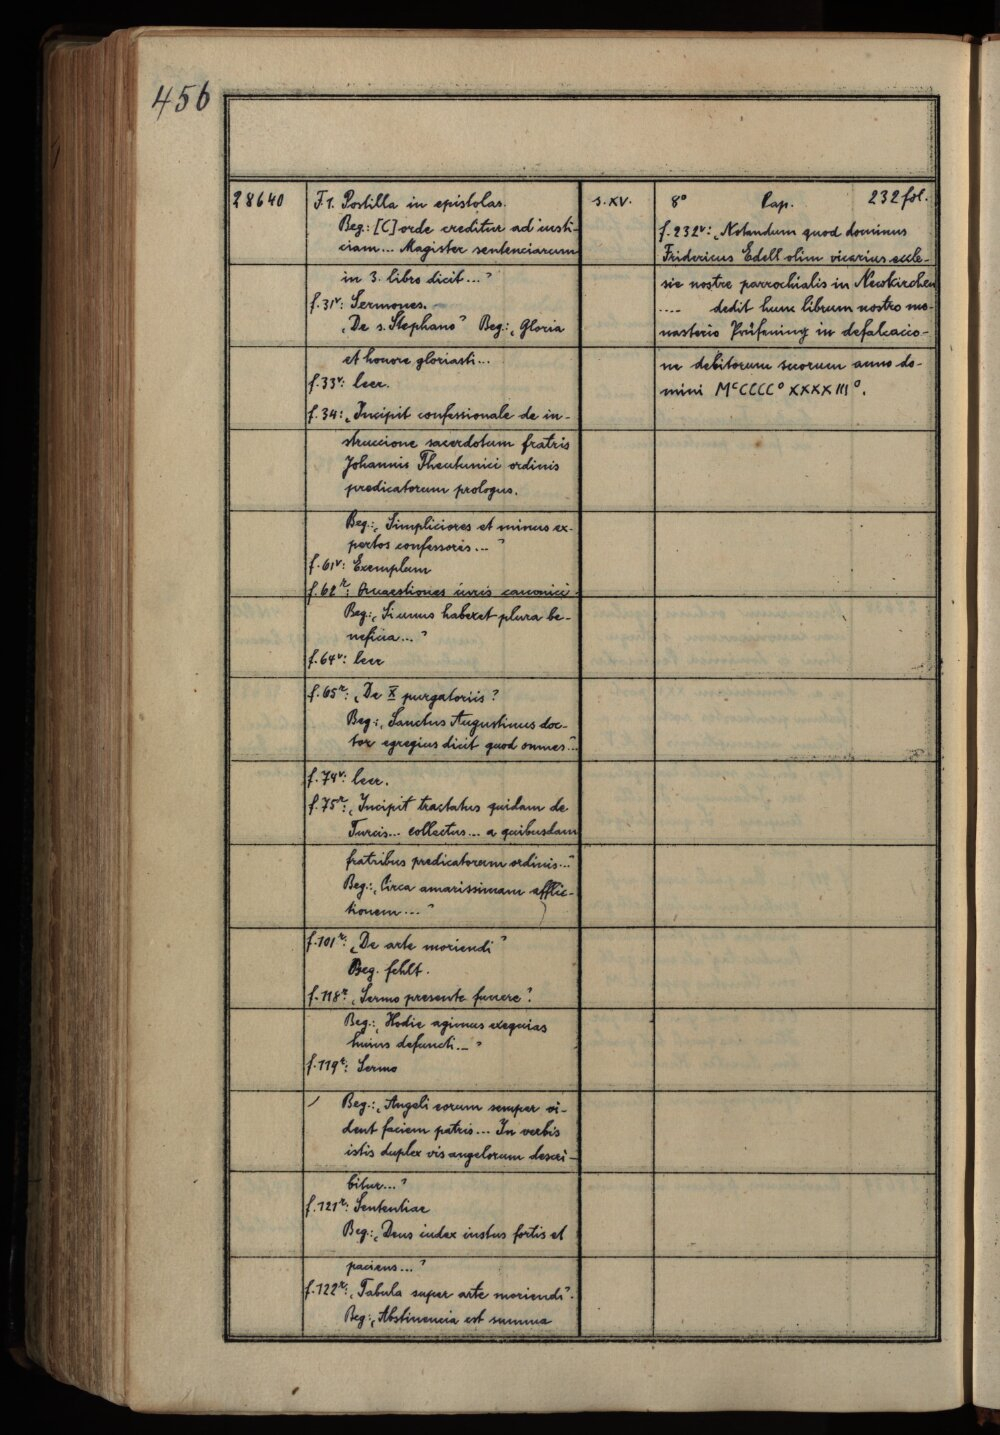 456
28640
F1. Postilla in epistolas.
Beg.: [C]orde creditur ad iusti-
ciam... Magister sentenciarum
in 3. libro dicit..."
f.31v: Sermones.
"De s. Stephano" Beg.: "Gloria
et honore gloriasti...
f.33v: leer.
f.34: "Incipit confessionale de in-
struccione sacerdotum fratris
Johannis Theutunici ordinis
predicatorum prologus.
Beg.: "Simpliciores et minus ex-
pertos confessores..."
f.61v: Exemplum
f.62r: Quaestiones iuris canonici.
Beg.: "Si unus haberet plura be-
neficia..."
f.64v: leer
f.65r: "De X purgatoriis".
Beg.: "Sanctus Augustinus doc-
tor egregius dicit quod omnes..."
f.74v: leer.
f.75r: "Incipit tractatus quidam de
Turcis... collectus... a quibusdam
fratribus predicatorum ordinis..."
Beg.: "Circa amarissimam afflic-
tionem..."
f.101r: "De arte moriendi"
Beg. fehlt.
f.118r "Sermo presente funere".
Beg.: "Hodie agimus exequias
huius defuncti..."
f.119r: Sermo
Beg.: "Angeli eorum semper vi-
dent faciem patris... In verbis
istis duplex vis angelorum descri-
bitur..."
f.121r: Sententiae
Beg.: "Deus iudex iustus fortis et
paciens..."
f.122r: "Tabula super arte moriendi".
Beg.: "Abstinencia est summa
s. XV.
8° Pap. 232 fol.
f.232v: "Notandum quod dominus
Fridericus Edell olim vicarius eccle-
sie nostre parrochialis in Newkirchen
.... dedit hunc librum nostro mo-
nasterio Prüfening in defalcacio-
ne debitorum suorum anno do-
mini McCCCC° XXXXIII°.